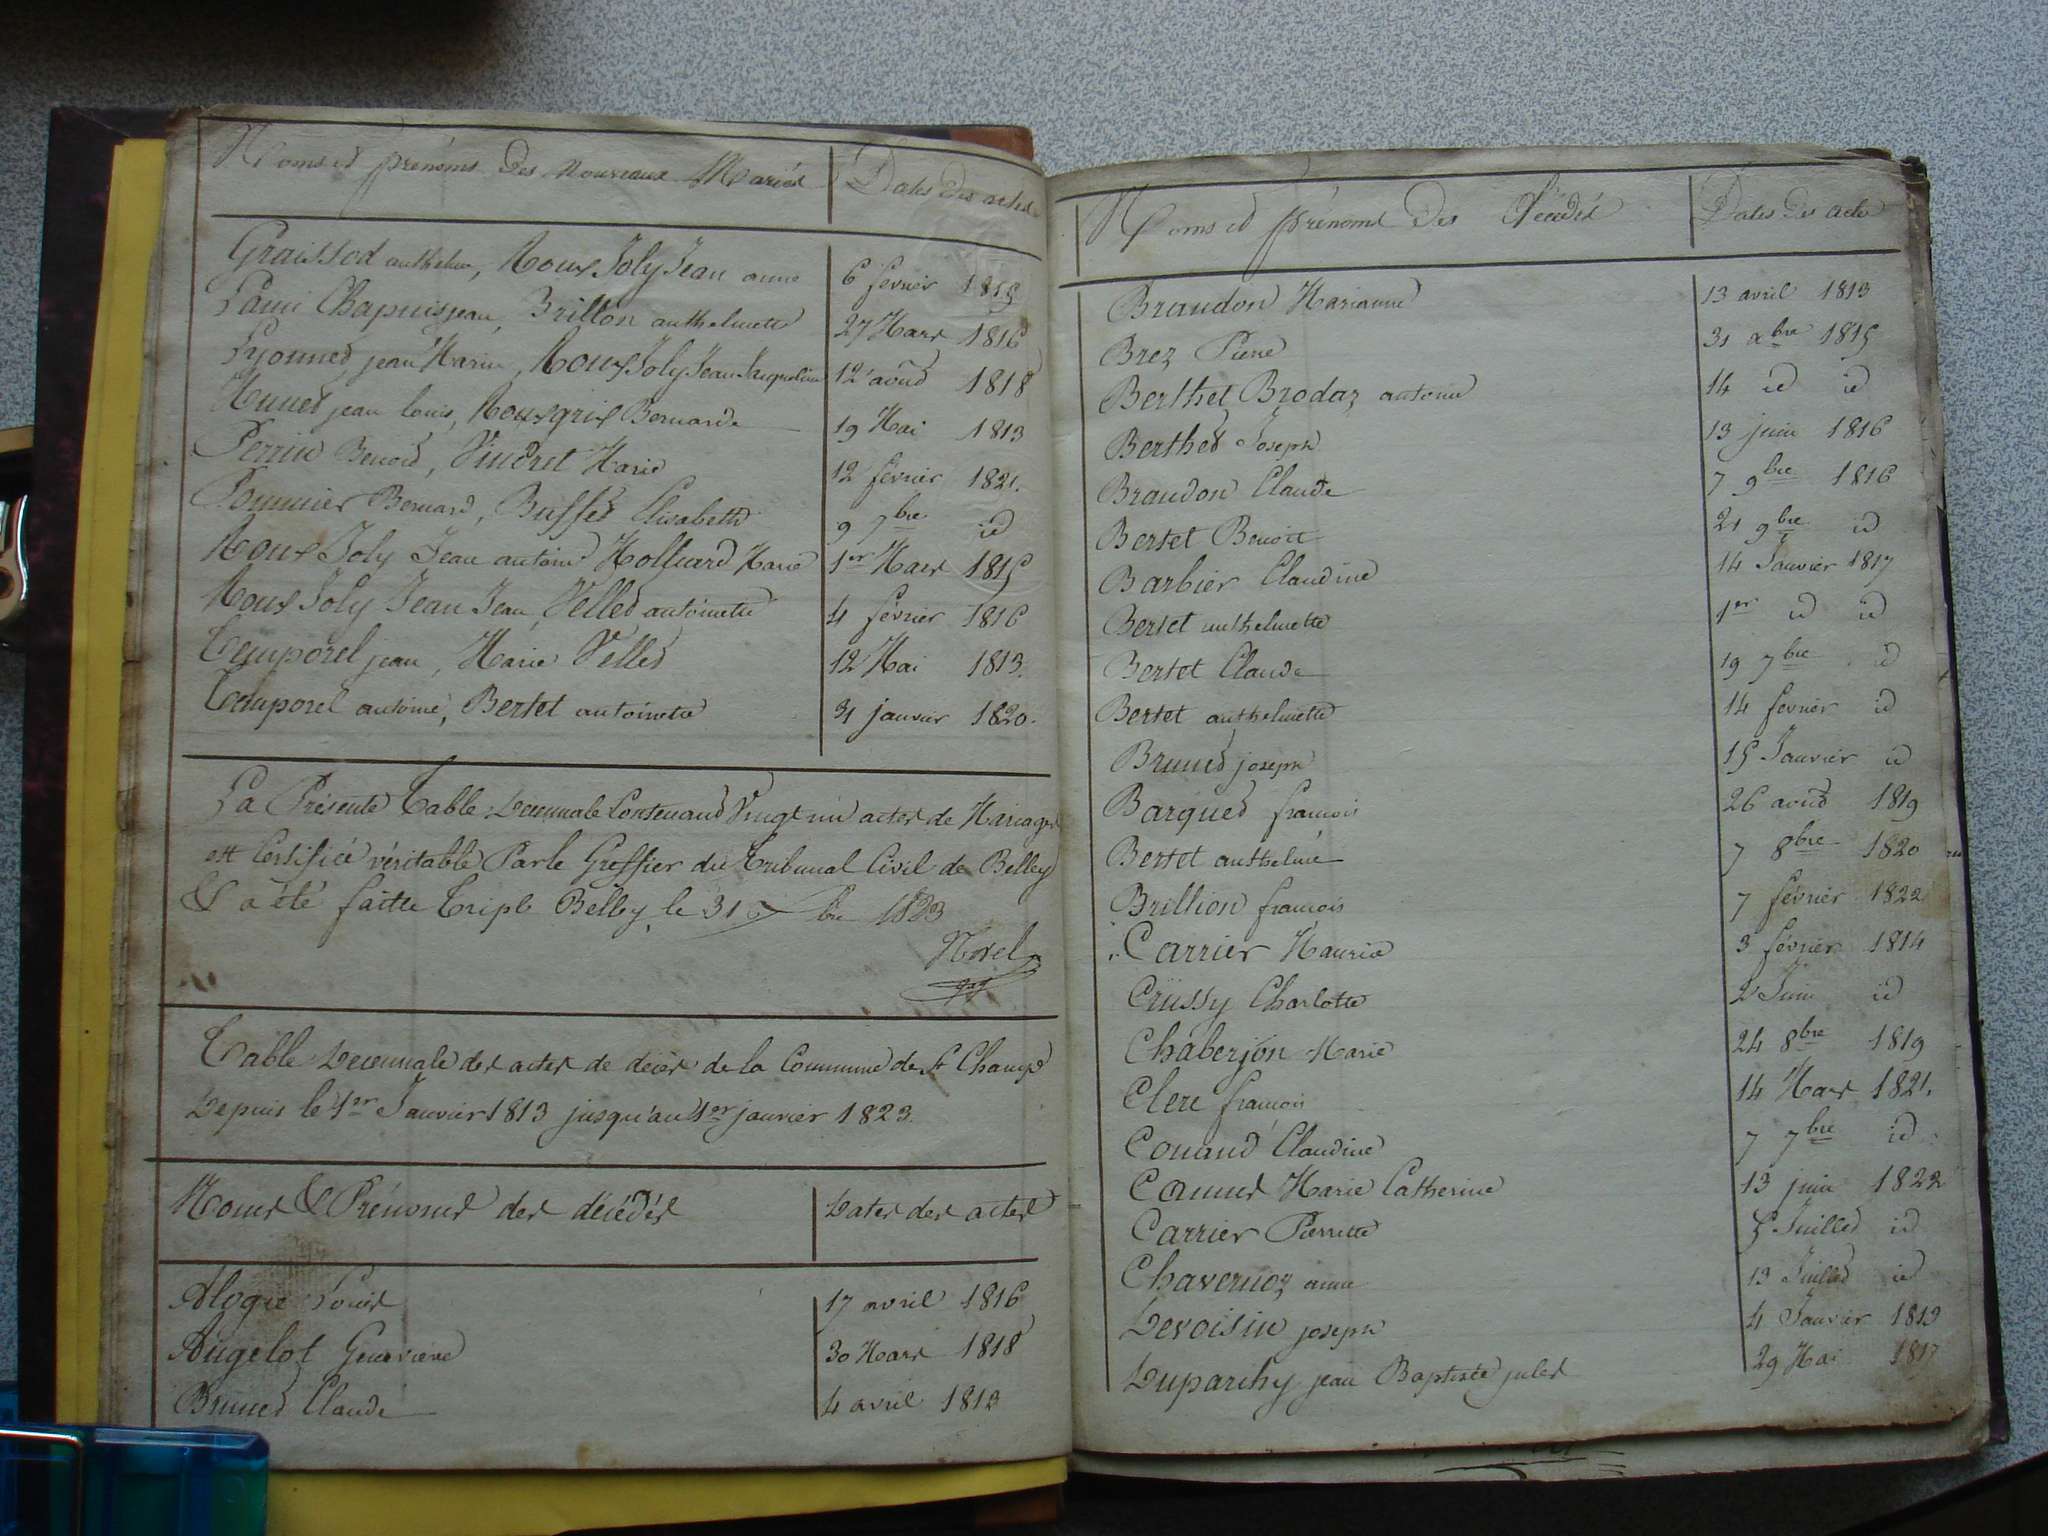 Noms et prénoms Des Nouveaux Mariés Dates des actes
Graisset anthelme, Roux Joly Jean anne 6 février 1815
Lami Chapuis jean, Brillon anthelmette 27 Mars 1816
Lyonnet jean Marin, Roux Joly Jean Jacqueline 12 août 1818
Munet jean louis, Roux gris Bernarde 19 Mai 1813
Perrin Benoit, Vindret Marie 12 février 1821.
Pommier Bernard, Buffet Elisabeth 9 7bre id
Roux Joly Jean antoine Molliard Marie 1er Mars 1815
Roux Joly Jean Jean, Vellet antoinette 4 février 1816
Temporel jean, Marie Vellet 12 Mai 1813.
Temporel antoine, Bertet antoinette 31 janvier 1820.
La Présente Table Décennale Contenant Vingt un actes de Mariages
est Certifiée véritable Par le Greffier du tribunal Civil de Belley
& a été faitte Triple Belley, le 31 bre 1823
Morel
Table Décennale des actes de décès de la Commune de St Champ
Depuis le 1er Janvier 1813 jusqu'au 1er janvier 1823.
Noms & Prénoms des décédés Dates des actes
Alogue Louis 17 avril 1816
Augelot Geneviève 30 Mars 1818
Brunet Claude 4 avril 1813
Noms et Prénoms Des Décédés Dates Des actes
Braudon Marianne 13 avril 1813
Brez Pierre 31 xbre 1815
Berthet Brodaz antoine 14 id id
Berthet Joseph 13 juin 1816
Braudon Claude 7 9bre 1816
Bertet Benoit 21 9bre id
Barbier Claudine 14 Janvier 1817
Bertet anthelmette 1er id id
Bertet Claude 19 7bre id
Bertet anthelmette 14 février id
Brunet joseph 15 Janvier id
Barquet françois 26 août 1819
Bertet anthelme 7 8bre 1820
Brillion françois 7 février 1822
Carrier Maurice 3 février 1814
Crussy Charlotte 2 Juin id
Chaberjon Marie 24 8bre 1819
Clerc françois 14 Mars 1821.
Conand Claudine 7 7bre id
Camus Marie Catherine 13 juin 1822
Carrier Pierrette 5 Juillet id
Chavernoz anne 13 Juillet id
Devoisin joseph 4 Janvier 1813
Duparchy jean Baptiste jules 29 Mai 1817